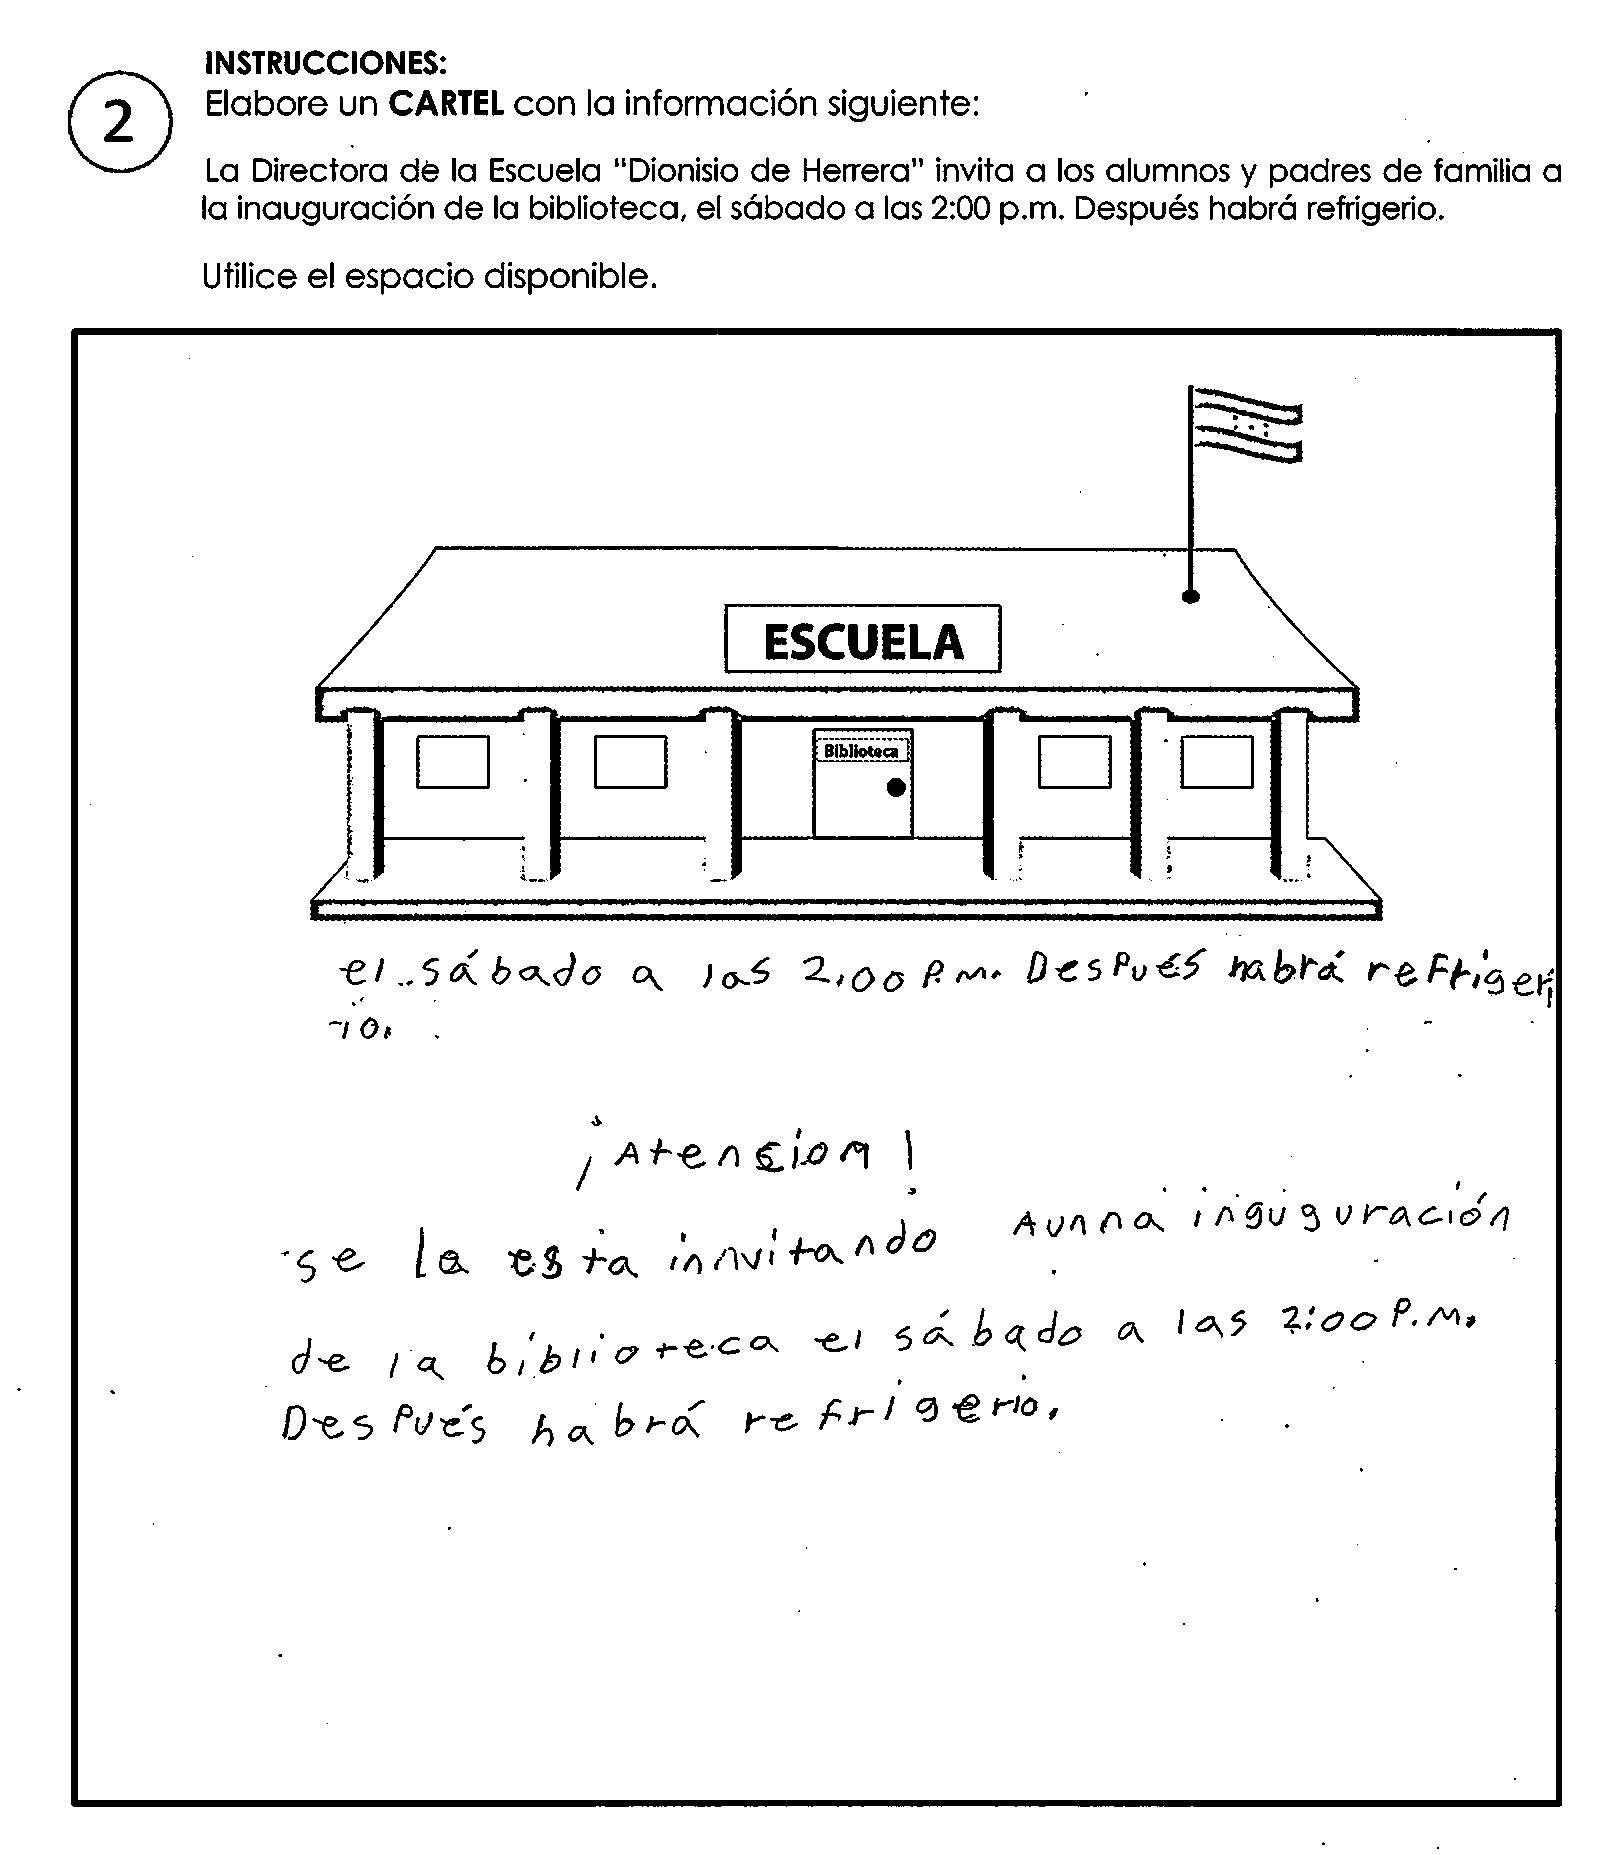 INSTRUCCIONES:
2
Elabore un CARTEL con la información siguiente:
La Directora de la Escuela "Dionisio de Herrera" invita a los alumnos y padres de familia a
la inauguración de la biblioteca, el sábado a las 2:00 p.m. Después habrá refrigerio.
Utilice el espacio disponible.
ESCUELA
Biblioteca
el sábado a las 2,00 P.m. Después habrá refrigeri
io.
¡Atencion!
se le esta innvitando Aunna inguguración
de la biblioteca el sábado a las 2:00 P.M.
Después habrá refrigerio.